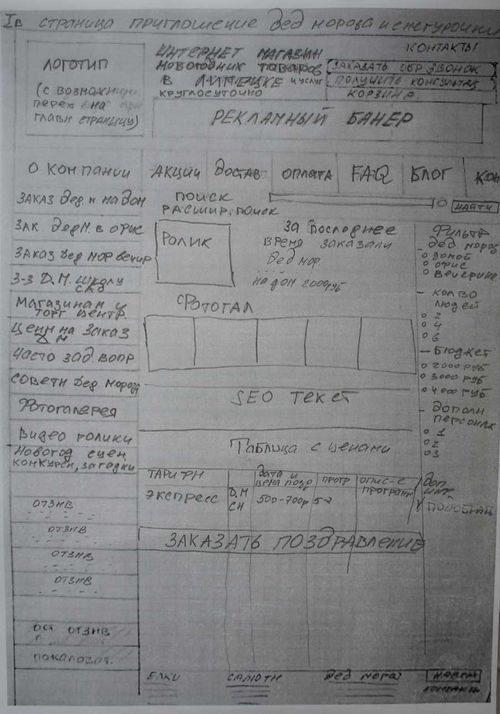 страница приглошение дед мороза и снегурочки
ЛОГОТИП
(с возможн
перех на
главн страницу)
ИНТЕРНЕТ МАГАЗИН
новогодних товаров
В ЛИПЕЦКЕ и услуг
круглосуточно
КОНТАКТЫ
ЗАКАЗАТЬ ОБР ЗВОНОК
ПОЛУЧИТЬ КОНСУЛЬТАЦ
КОРЗИНА
РЕКЛАМНЫЙ БАНЕР
О КОМПАНИИ АКЦИИ ДОСТАВ ОПЛАТА FAQ БЛОГ КОН
ЗАКАЗ Дед М НА ДОМ
ЗАК Дед М. В ОФИС
ЗАКАЗ Дед МОР вечер
З-З Д.М. ШКОЛУ
САД
МАГАЗИНАМ И
ТОРГ ЦЕНТР.
ЦЕНЫ НА ЗАКАЗ
ДМ
ЧАСТО ЗАД ВОПР
СОВЕТЫ Дед. Мороза
ФОТОГАЛЕРЕЯ
ВИДЕО РОЛИКИ
НОВОГОД СЦЕН
КОНКУРСЫ, ЗАГАДКИ
ОТЗЫВ
ОТЗЫВ
ОТЗЫВ
ОТЗЫВ
ОСТ ОТЗЫВ
ПОИСК
РАСШИР. ПОИСК
НАЙТИ
РОЛИК
ЗА ПОСЛЕДНЕЕ
ВРЕМЯ ЗАКАЗАЛИ
Дед мор
НА ДОМ 2000руб
ФОТОГАЛ
SEO ТЕКСТ
Таблица с ценами
ТАРИФЫ
ДАТА И
ЦЕНА ПОЗДР
ПРОГР
ОПИС-Е
ПРОГРАМ
ЭКСПРЕСС
Д.М
СН
500-700р
5-7
ЗАКАЗАТЬ ПОЗДРАВЛЕНИЕ
ФИЛЬТР
Дед мороз
ДОМОЙ
ОФИС
ВЕЧЕРИНК
КОЛ ВО
ЛЮДЕЙ
2
4
6
БЮДЖЕТ
2000 РУБ
3000 РУБ
4000 РУБ
ДОПОЛН
ПЕРСОНАЖ
1
2
3
ДОП
ЕЛКИ САЛЮТЫ Дед мороз
КОНТАКТЫ